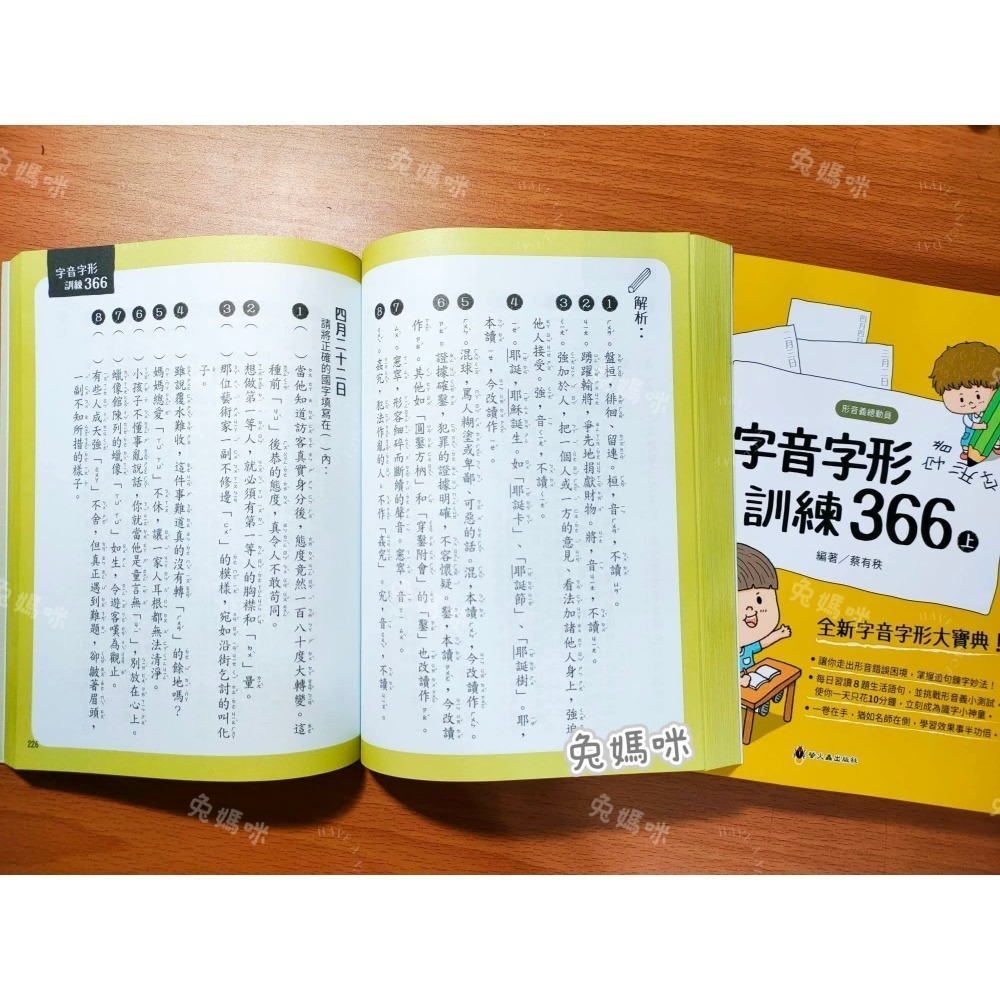 解析：
1 ㄏㄨㄢˊ。盤桓，徘徊、留連。桓，音ㄏㄨㄢˊ，不讀
2 。踴躍輸將，爭先地捐獻財物。將，音ㄐㄧㄤ，不讀
3 。強加於人，把一個人或一方的意見、看法加諸他人身上，強迫
他人接受。強，音，不讀
4 。耶誕，耶穌誕生。如「耶誕卡」、「耶誕節」、「耶誕樹」。耶，
本讀，今改讀作
5 。混球，罵人糊塗或卑鄙、可惡的話。混，本讀，今改讀作
6 。證據確鑿，犯罪的證據明確，不容懷疑。鑿，本讀，今改讀
作。其他如「圓鑿方枘」和「穿鑿附會」的「鑿」也改讀作
7 。窸窣，形容細碎而斷續的聲音。窸窣，音
8 。姦宄，犯法作亂的人。不作「姦究」。宄，音，不讀
字音字形
訓練366
四月二十二日
請將正確的國字填寫在（ ）內：
1（ ）當他知道訪客真實身分後，態度竟然一百八十度大轉變。這
種前「ㄐㄩ」後恭的態度，真令人不敢苟同。
2（ ）想做第一等人，就必須有第一等人的胸襟和「」量。
3（ ）那位藝術家一副不修邊「」的模樣，宛如沿街乞討的叫化
子。
4（ ）雖說覆水難收，這件事難道真的沒有轉「」的餘地嗎？
5（ ）媽媽總愛「」不休，讓一家人耳根都無法清淨。
6（ ）小孩子不懂事亂說話，你就當他是童言無「ㄐㄧˋ」，別放在心上。
7（ ）蠟像館陳列的蠟像「」如生，令遊客嘆為觀止。
8（ ）有些人成天強「」不舍，但真正遇到難題，卻皺著眉頭，
一副不知所措的樣子。
226
四月四日
三月三日
二月二日
形音義總動員
字音字形
訓練366上
編著／蔡有秩
全新字音字形大寶典！
•讓你走出形音錯誤困境，掌握造句鍊字妙法！
•每日習讀8題生活語句，並挑戰形音義小測試，
使你一天只花10分鐘，立刻成為識字小神童。
•一卷在手，猶如名師在側，學習效果事半功倍。
螢火蟲出版社
兔媽咪